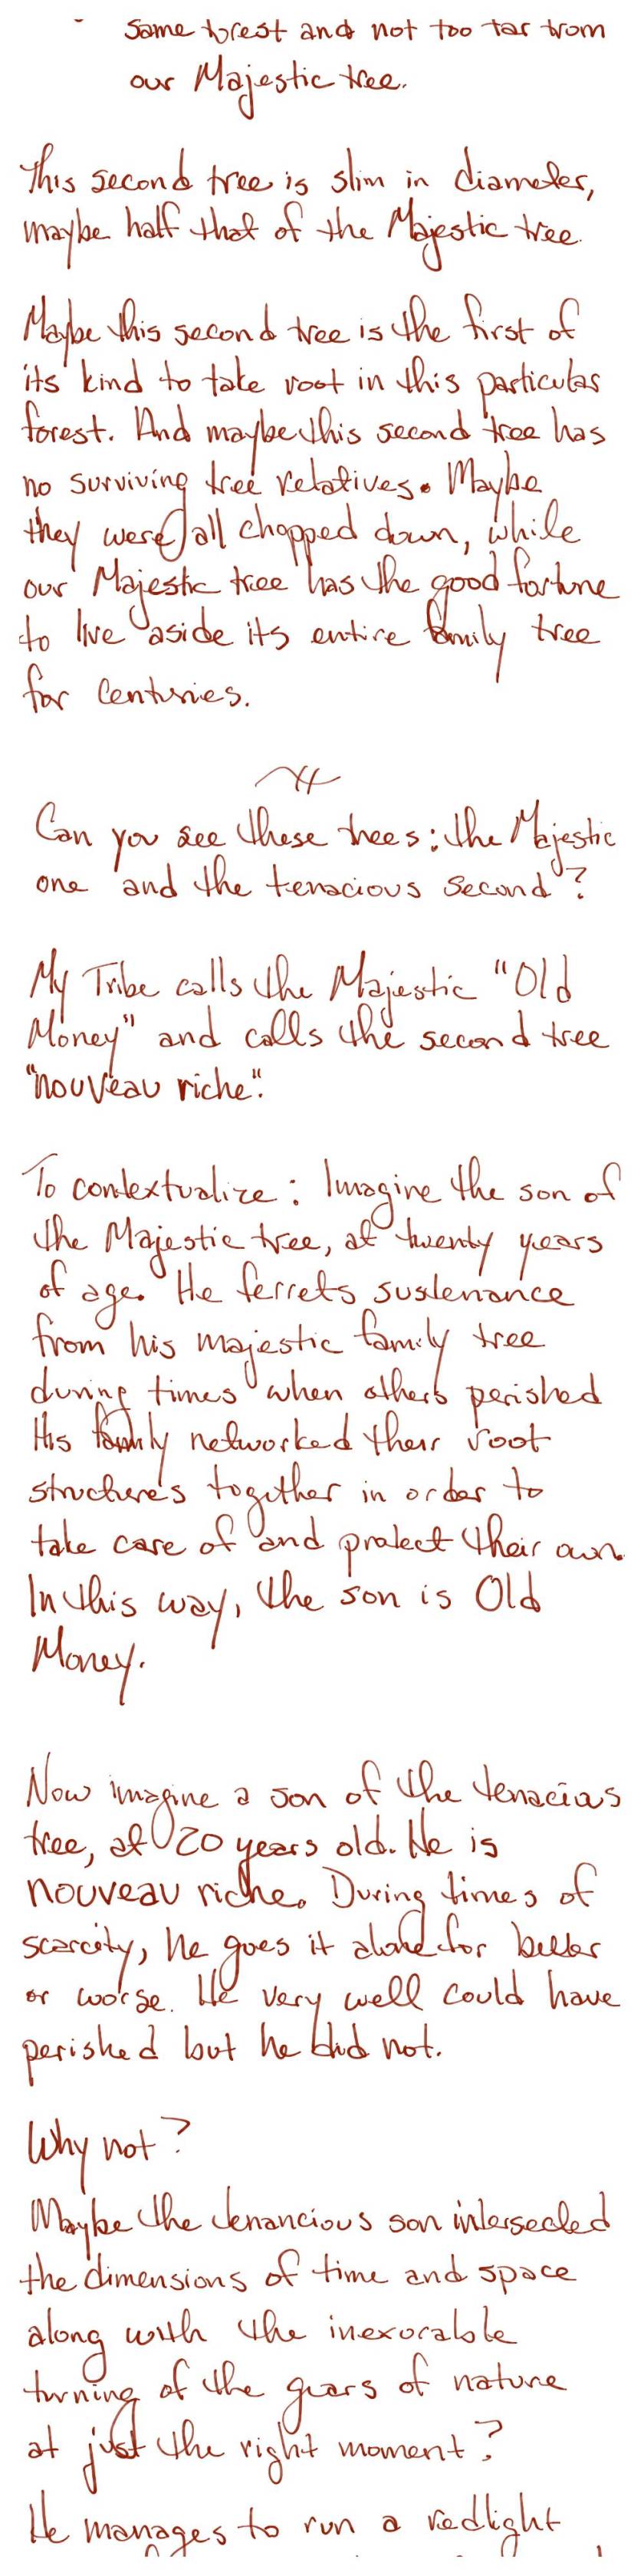 same forest and not too far from
our Majestic tree.
This second tree is slim in diameter,
maybe half that of the Majestic tree.
Maybe this second tree is the first of
its kind to take root in this particular
forest. And maybe this second tree has
no surviving tree relatives. Maybe
they were all chopped down, while
our Majestic tree has the good fortune
to live aside its entire family tree
for centuries.
Can you see these trees: the Majestic
one and the tenacious second?
My Tribe calls the Majestic "Old
Money" and calls the second tree
"nouveau riche".
To contextualize: Imagine the son of
the Majestic tree, at twenty years
of age. He ferrets sustenance
from his majestic family tree
during times when others perished
His family networked their root
structures together in order to
take care of and protect their own.
In this way, the son is Old
Money.
Now imagine a son of the tenacious
tree, at 20 years old. He is
nouveau riche. During times of
scarcity, he goes it alone for better
or worse. He very well could have
perished but he did not.
Why not?
Maybe the tenancious son intersected
the dimensions of time and space
along with the inexorable
turning of the gears of nature
at just the right moment?
He manages to run a redlight